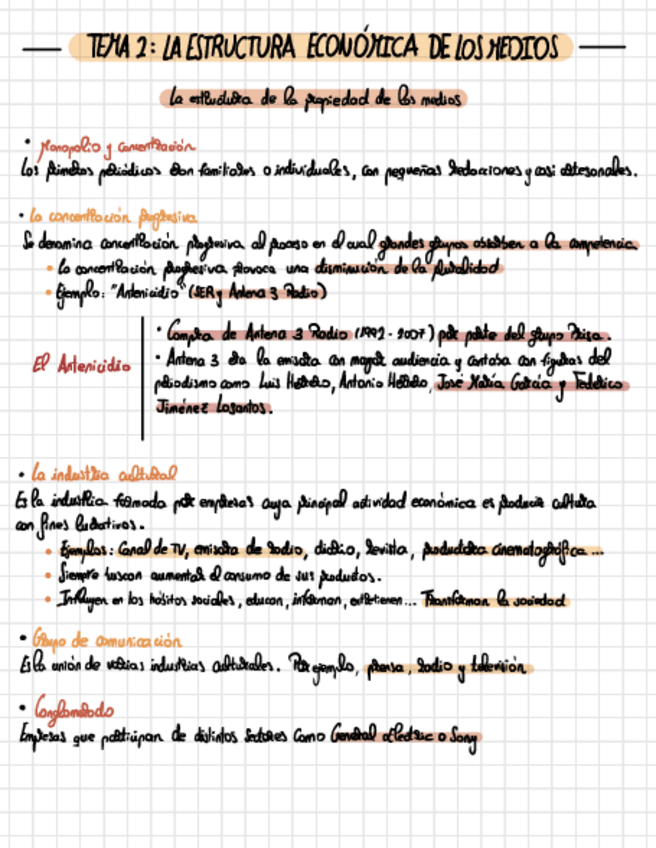 TEMA 2: LA ESTRUCTURA ECONÓMICA DE LOS MEDIOS
La estructura de la propiedad de los medios
• Monopolio y concentración
Los primeros periódicos eran familiares o individuales, con pequeñas redacciones y casi artesonales.
• La concentración progresiva
Se denomina concentración progresiva al proceso en el cual grandes grupos absorben a la competencia.
• La concentración progresiva provoca una disminución de la pluralidad
• Ejemplo: "Antenicidio" (SER y Antena 3 Radio)
El Antenicidio
• Compra de Antena 3 Radio (1992-2007) por parte del grupo Prisa.
• Antena 3 era la emisora con mayor audiencia y contaba con figuras del
periodismo como Luis Herrero, Antonio Herrero, José María García y Federico
Jiménez Losantos.
• La industria cultural
Es la industria formada por empresas cuya principal actividad económica es producir cultura
con fines lucrativos.
• Ejemplos: Canal de TV, emisora de radio, diario, revista, productora cinematográfica...
• Siempre buscan aumentar el consumo de sus productos.
• Influyen en los hábitos sociales, educan, informan, entretienen... Transforman la sociedad
• Grupo de comunicación
Es la unión de varias industrias culturales. Por ejemplo, prensa, radio y televisión
• Conglomerado
Empresas que participan de distintos sectores como General electric o Sony